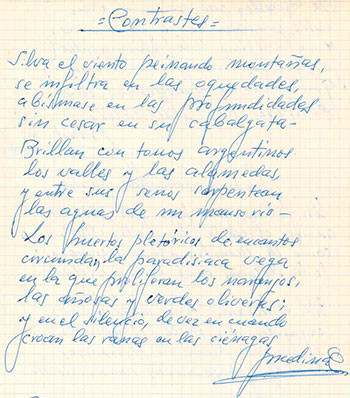 =Contrastes=
Silva el viento peinando montañas,
se infiltra en las oquedades,
abismase en las profundidades
sin cesar en su cabalgata-
Brillan con tonos argentinos
los valles y las alamedas,
y entre sus senos serpentean
las aguas de un manso rio-
Los huertos pletóricos de encantos
circundan la paradisiaca vega
en la que proliferan los naranjos,
las añosas y verdes oliveras;
y en el silencio, de vez en cuando
croan las ranas en las ciénagas